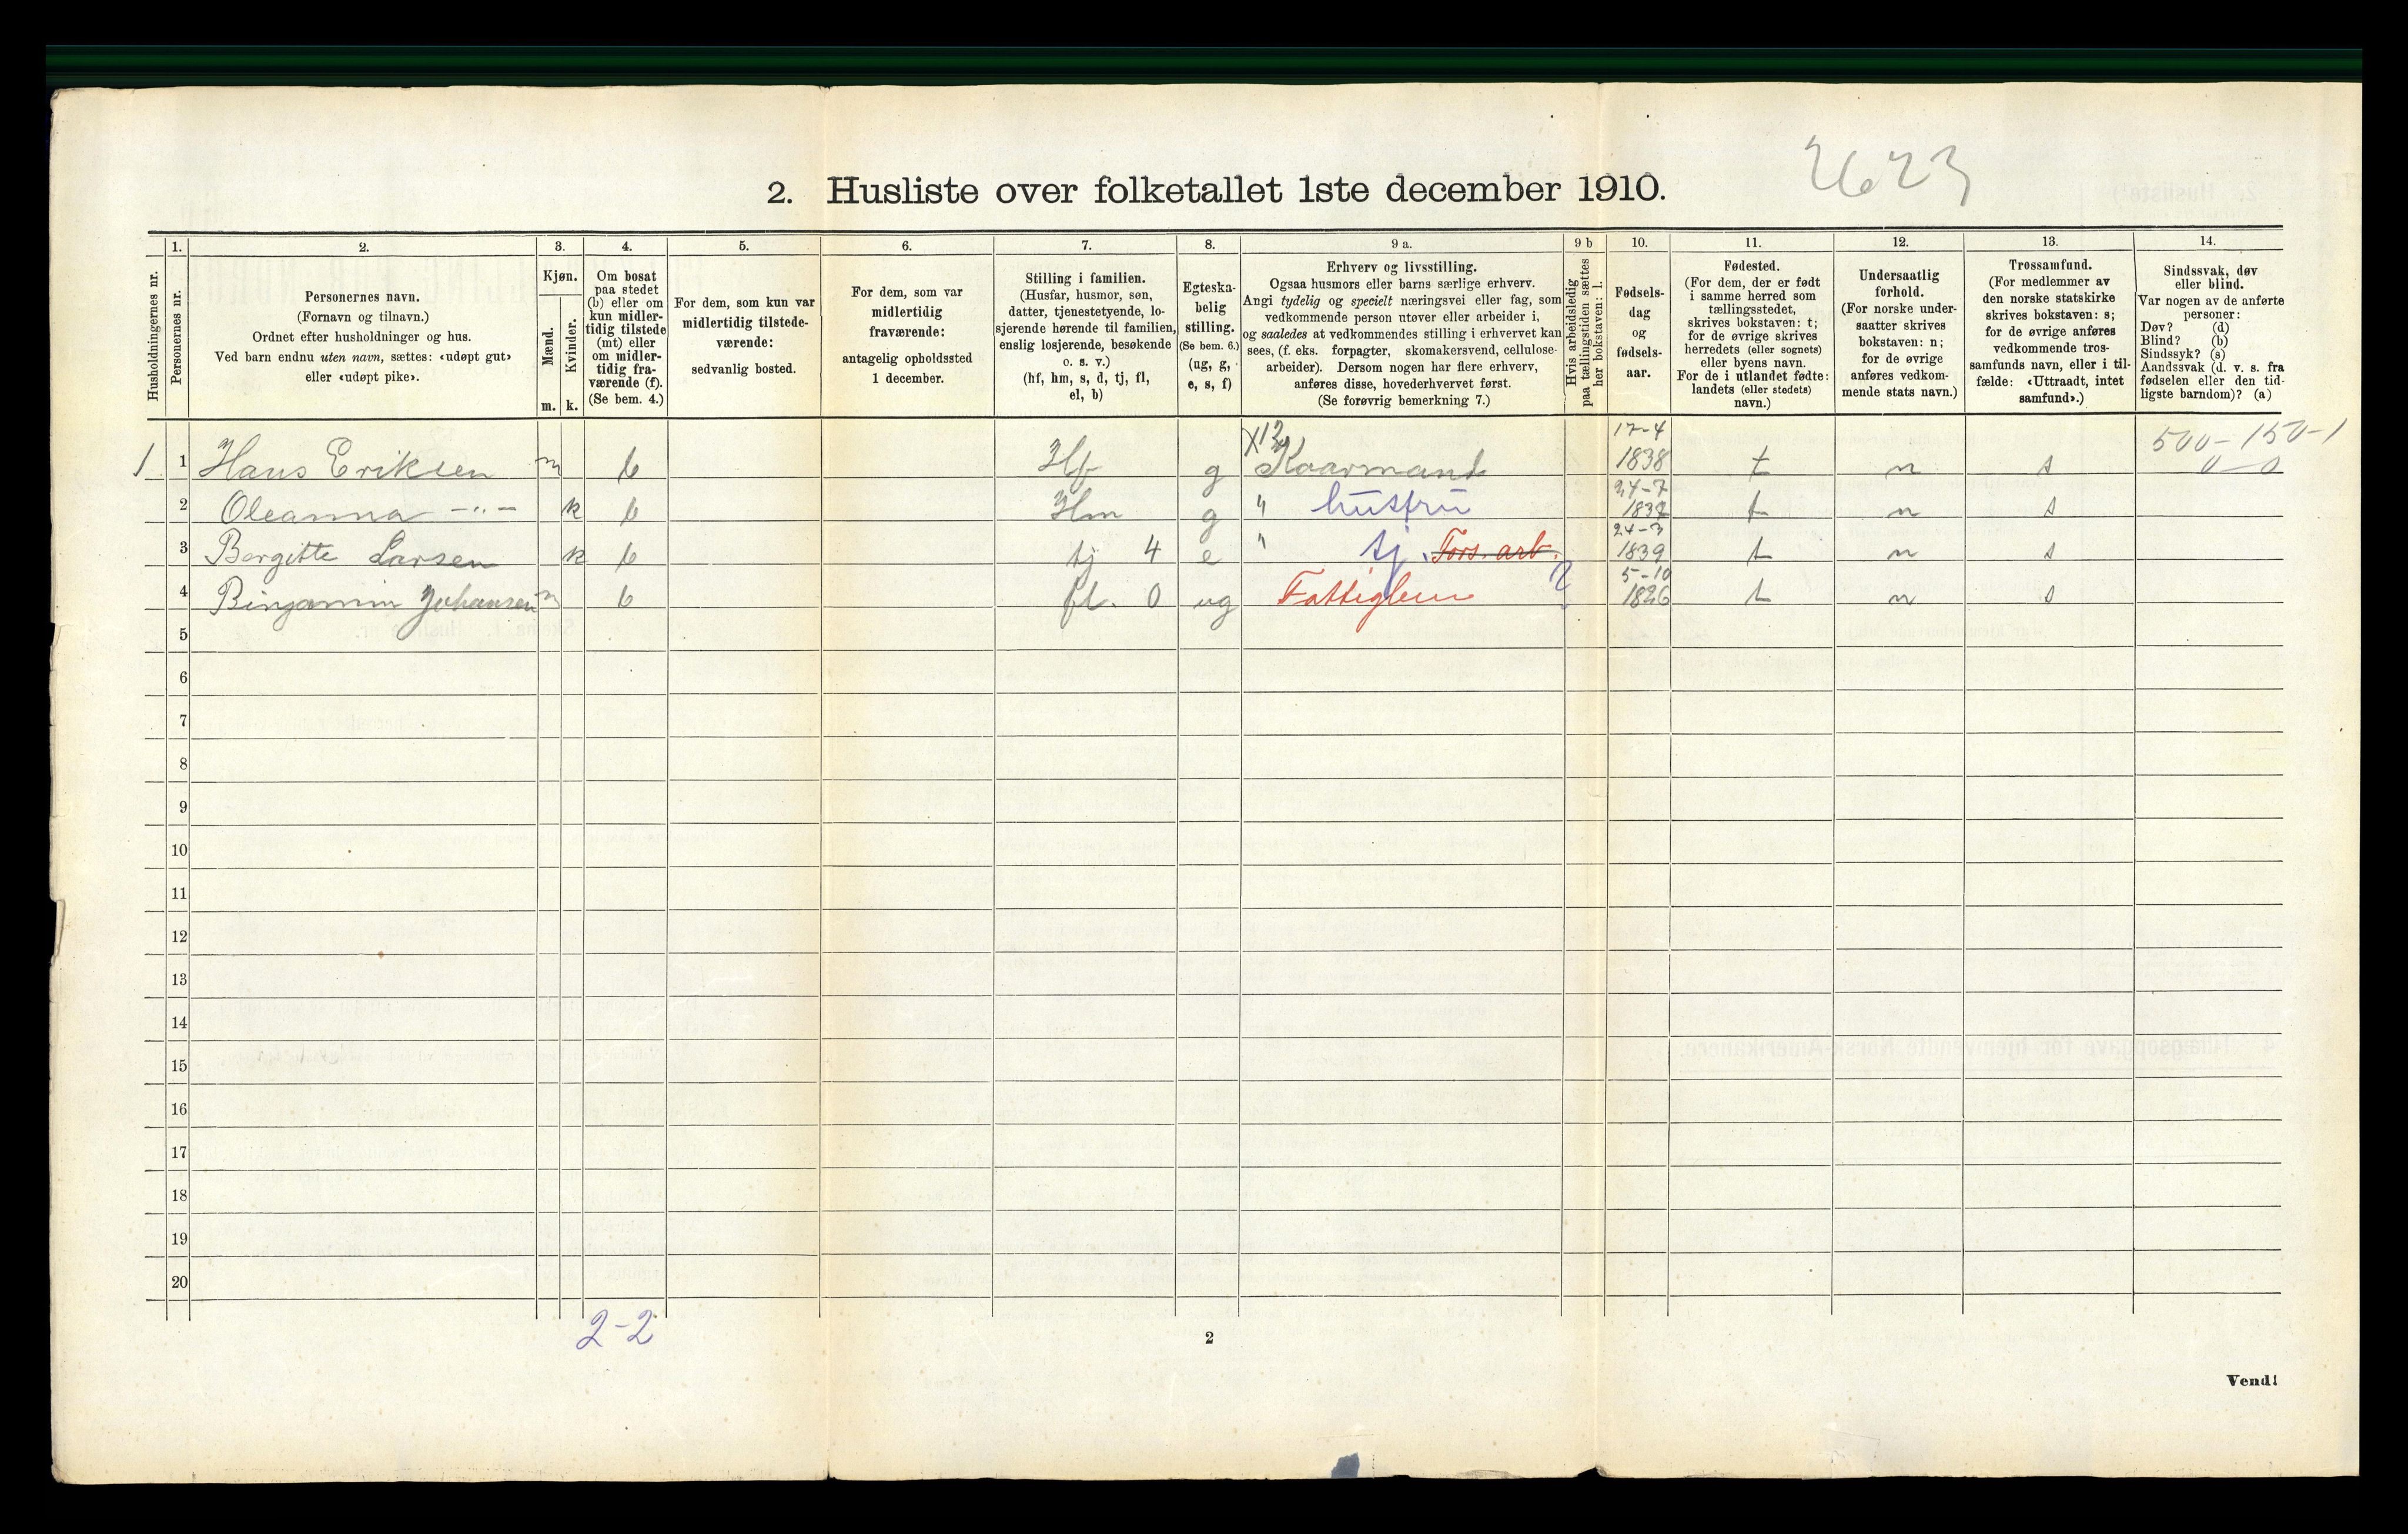 2623
2. Husliste over folketallet 1ste december 1910.
Husholdningernes nr.
1.
Personernes nr.
2.
Personernes navn.
(Fornavn og tilnavn.)
Ordnet efter husholdninger og hus.
Ved barn endnu uten navn, sættes: «udøpt gut»
eller «udøpt pike».
3.
Kjøn.
Mænd.
Kvinder.
m. k.
4.
Om bosat
paa stedet
(b) eller om
kun midler-
tidig tilstede
(mt) eller
om midler-
tidig fra-
værende (f).
(Se bem. 4.)
5.
For dem, som kun var
midlertidig tilstede-
værende:
sedvanlig bosted.
6.
For dem, som var
midlertidig
fraværende:
antagelig opholdssted
1 december.
7.
Stilling i familien.
(Husfar, husmor, søn,
datter, tjenestetyende, lo-
sjerende hørende til familien,
enslig losjerende, besøkende
o. s. v.)
(hf, hm, s, d, tj, fl,
el, b)
8.
Egteska-
belig
stilling.
(Se bem. 6.)
(ug, g,
e, s, f)
9 a.
Erhverv og livsstilling.
Ogsaa husmors eller barns særlige erhverv.
Angi tydelig og specielt næringsvei eller fag, som
vedkommende person utøver eller arbeider i,
og saaledes at vedkommendes stilling i erhvervet kan
sees, (f. eks. forpagter, skomakersvend, cellulose-
arbeider). Dersom nogen har flere erhverv,
anføres disse, hovederhvervet først.
(Se forøvrig bemerkning 7.)
9 b
Hvis arbeidsledig
paa tællingstiden sættes
her bokstaven: l.
10.
Fødsels-
dag
og
fødsels-
aar.
11.
Fødested.
(For dem, der er født
i samme herred som
tællingsstedet,
skrives bokstaven: t;
for de øvrige skrives
herredets (eller sognets)
eller byens navn.
For de i utlandet fødte:
landets (eller stedets)
navn.)
12.
Undersaatlig
forhold.
(For norske under-
saatter skrives
bokstaven: n;
for de øvrige
anføres vedkom-
mende stats navn.)
13.
Trossamfund.
(For medlemmer av
den norske statskirke
skrives bokstaven: s;
for de øvrige anføres
vedkommende tros-
samfunds navn, eller i til-
fælde: «Uttraadt, intet
samfund».)
14.
Sindssvak, døv
eller blind.
Var nogen av de anførte
personer:
Døv? (d)
Blind? (b)
Sindssyk? (s)
Aandssvak (d. v. s. fra
fødselen eller den tid-
ligste barndom)? (a)
500-150-1
0-0
1 1 Hans Eriksen m b Hf g Kaarmand 17-4 1838 t n s
2 Oleanna -"- k b Hm g " hustru 24-7 t n s
3 Bergitte Larsen k b tj 4 e " tj. Fors. arb. 24-3 1839 t n s
4 Binjamin Johansen m b fl. 0 ug Fattiglem 5-10 1826 t n s
5
6
7
8
9
10
11
12
13
14
15
16
17
18
19
20
2-2
2
Vend!